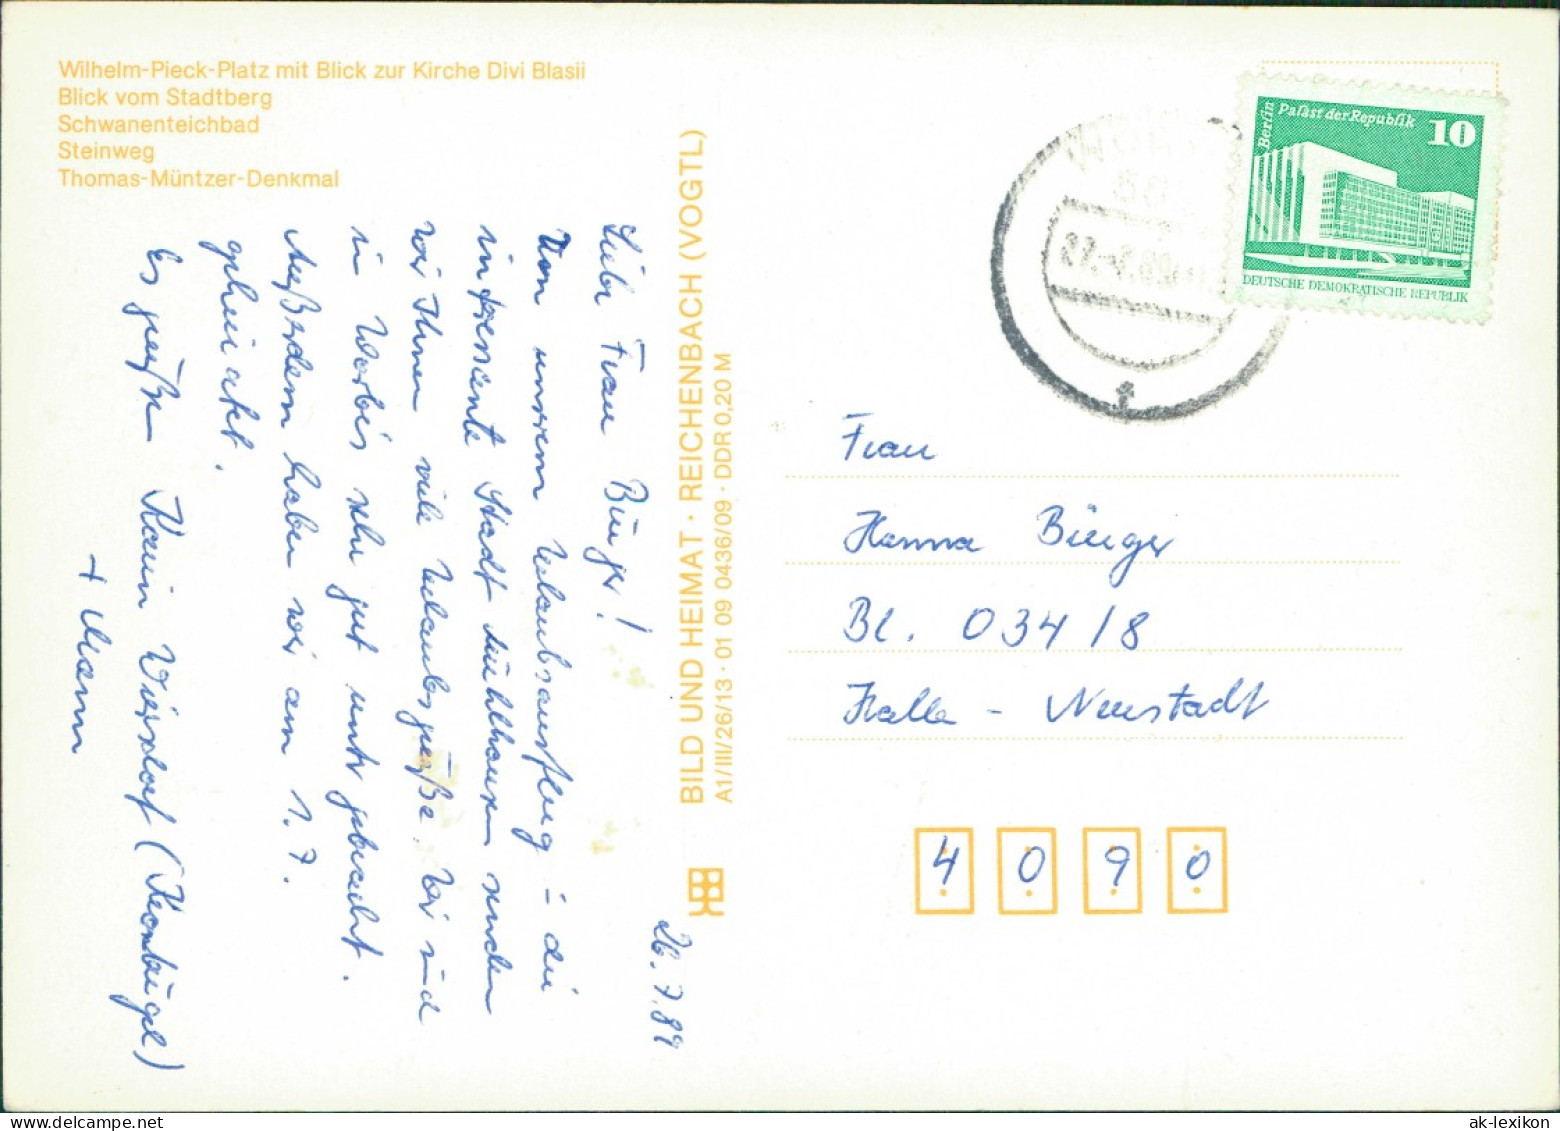 Wilhelm-Pieck-Platz mit Blick zur Kirche Divi Blasii
Blick vom Stadtberg
Schwanenteichbad
Steinweg
Thomas-Müntzer-Denkmal
26.7.89
Liebe Frau Bürger!
Von unserem Urlaubsausflug in die
interessante Stadt Mühlhausen senden
wir Ihnen viele Urlaubsgrüße. Wir sind
in Worbis sehr gut untergebracht.
Außerdem haben wir am 1.7.
geheiratet.
Es grüßen Karin Wiersdorf
+ Mann
BILD UND HEIMAT · REICHENBACH (VOGTL)
A1/III/26/13 · 01 09 0436/09 · DDR 0,20 M
Berlin
Palast der Republik
10
DEUTSCHE DEMOKRATISCHE REPUBLIK
Frau
Hanna Bürger
Bl. 034/8
Halle - Neustadt
4 0 9 0
ak-lexikon.com